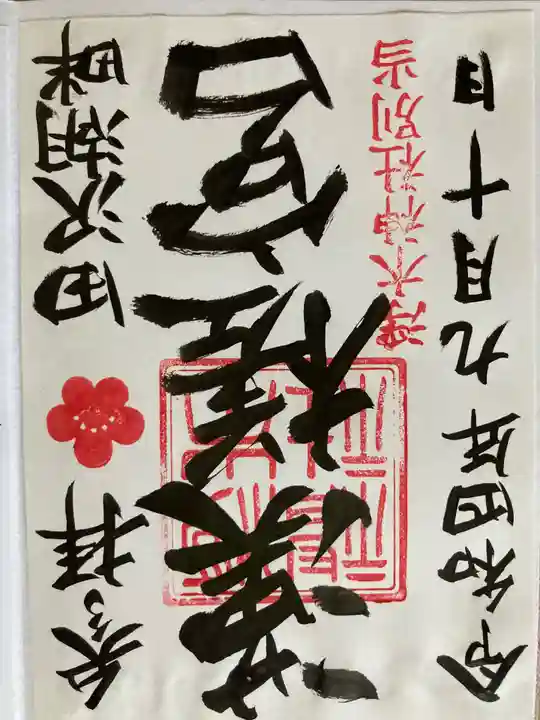 奉拝 田沢湖畔
漢槎宮
浮木神社別当
令和四年九月十日